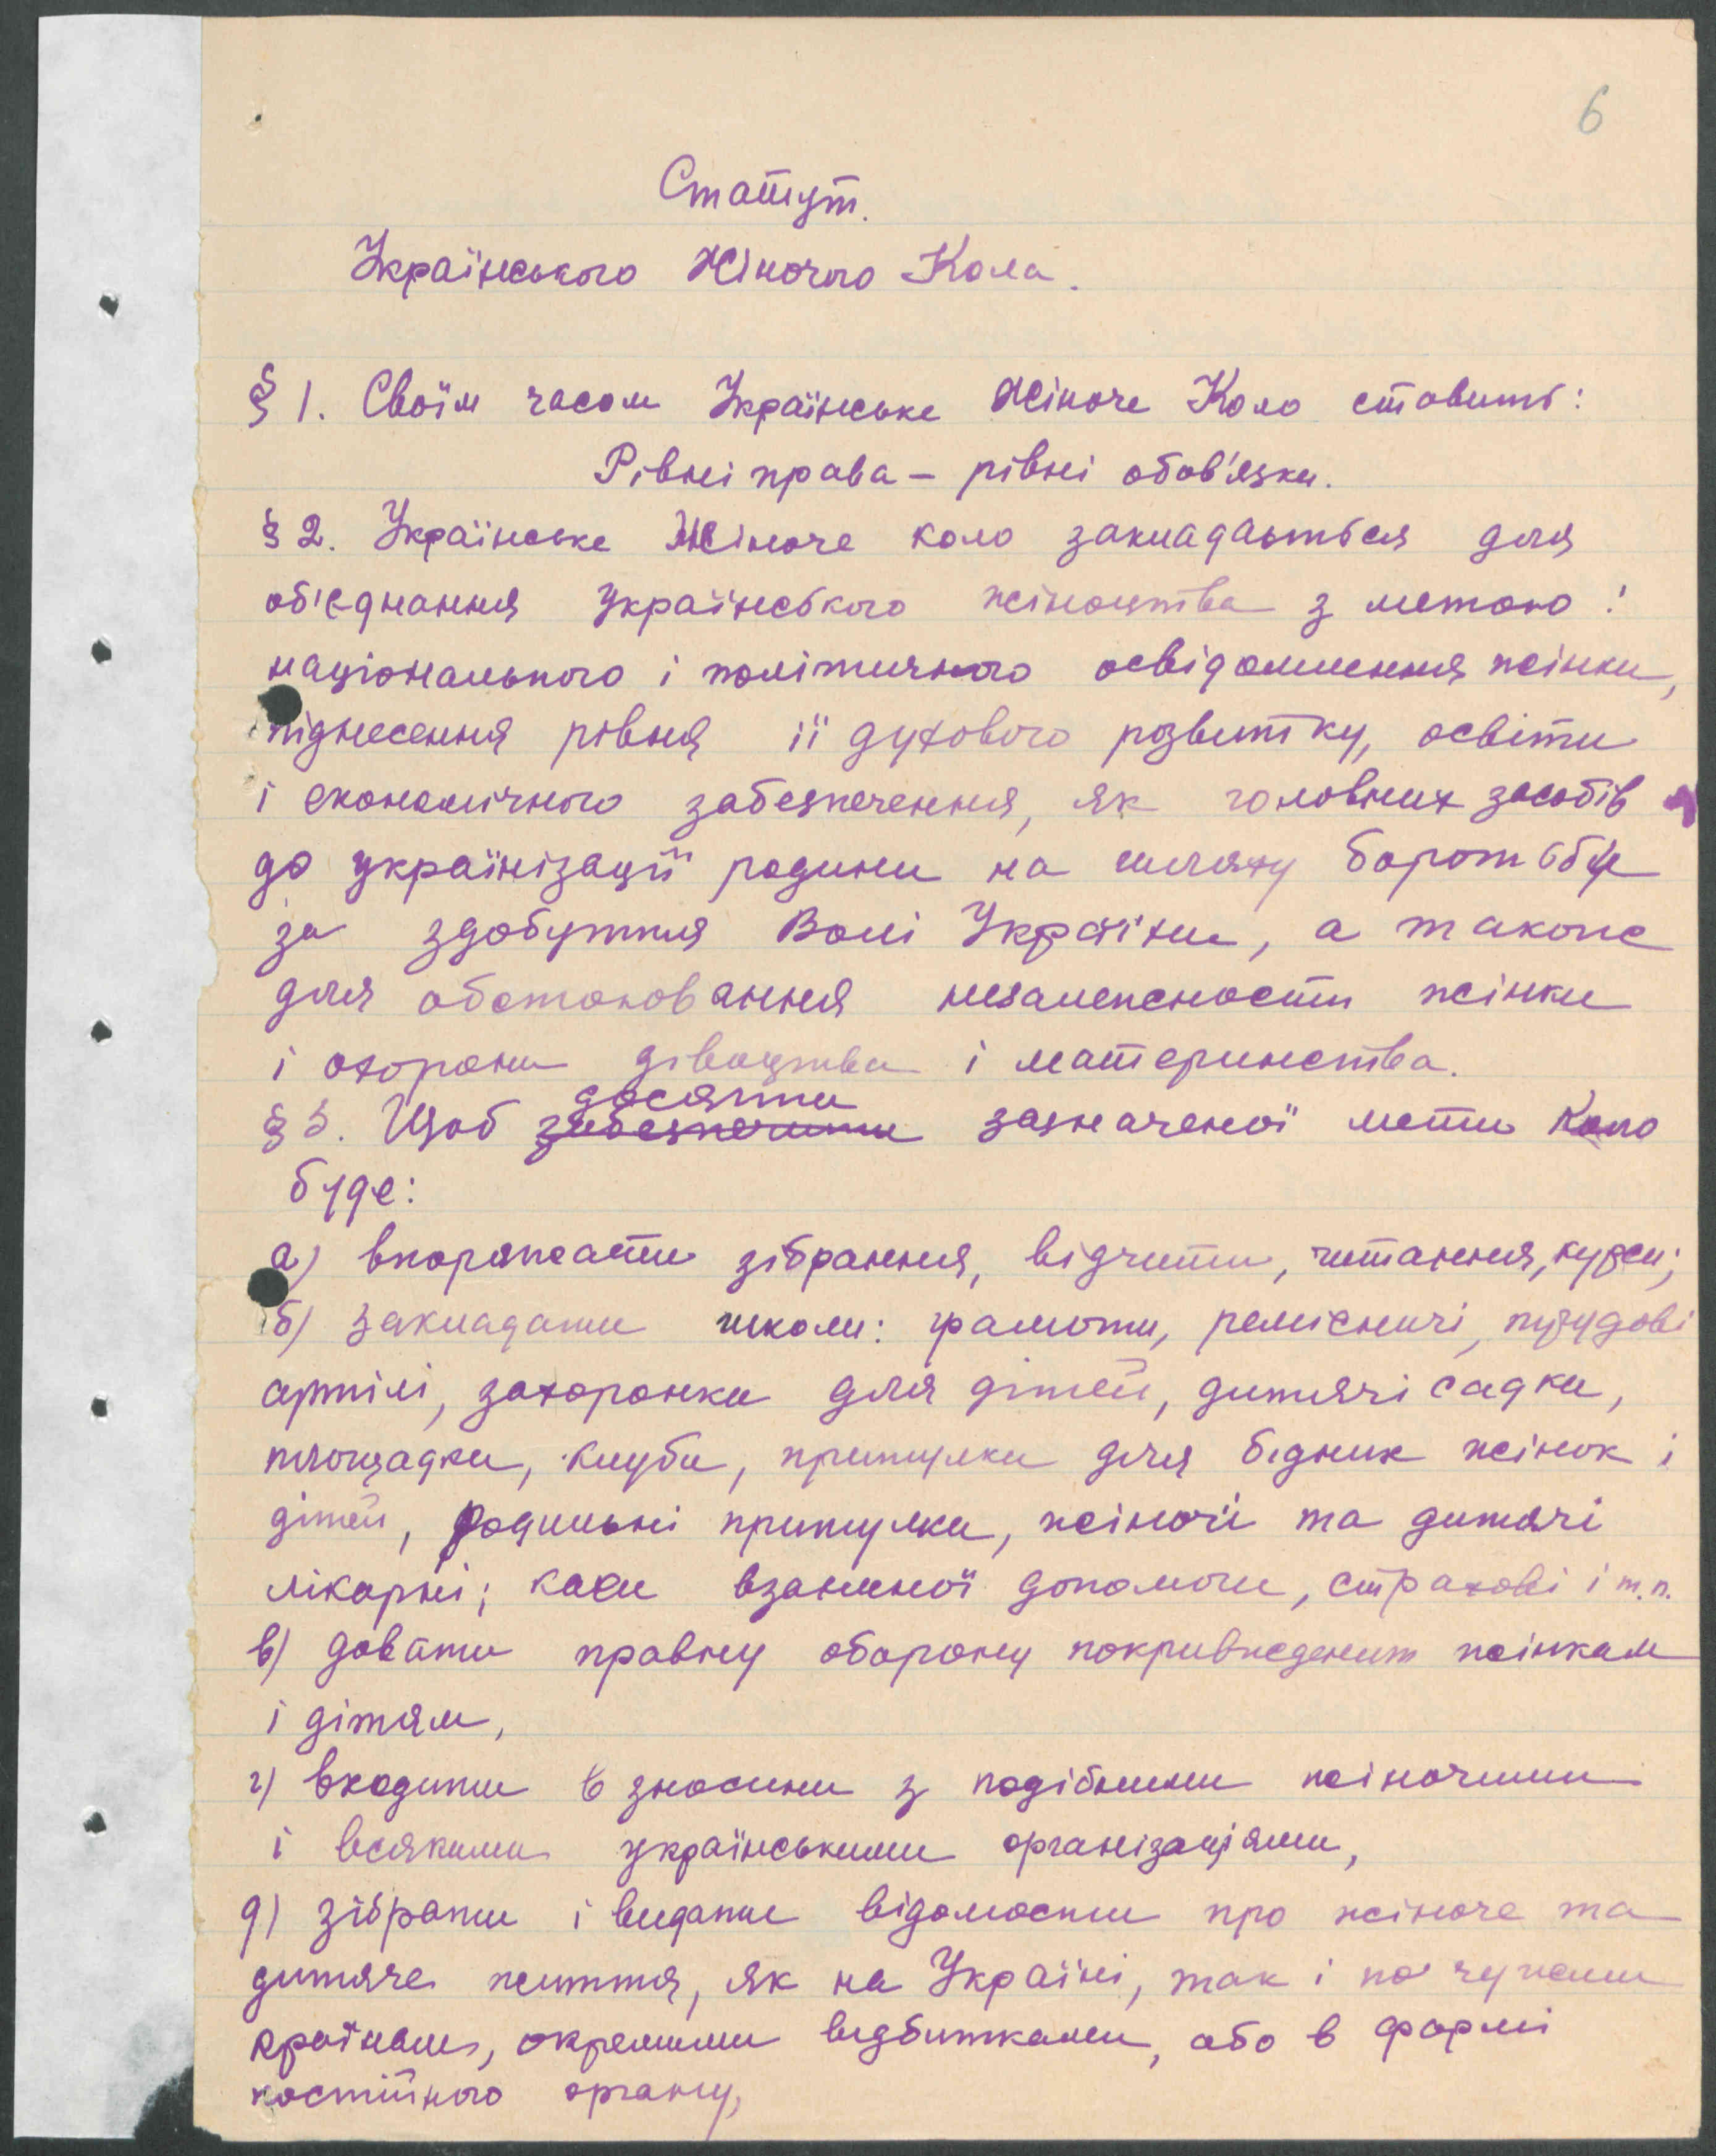 6
Статут.
Українського Жіночого Кола.
§ 1. Своїм часом Українське Жіноче Коло ставить:
Рівні права – рівні обов'язки.
§ 2. Українське Жіноче коло закладається для
об'єднання українського жіноцтва з метою:
національного і політичного освідомлення жінки,
піднесення рівня її духового розвитку, освіти
і економічного забезпечення, як головних засобів
до українізації родини на шляху боротьби
за здобуття Волі України, а також
для обстоювання незалежности жінки
і охорони дівоцтва і материнства.
досягти
§ 3. Щоб забезпечити зазначеної мети Коло
буде:
а) впоряжати зібрання, відчити, читання, курси;
б) закладати школи: грамоти, ремісничі, трудові
артілі, захоронки для дітей, дитячі садки,
площадки, клуби, притулки для бідних жінок і
дітей, родильні притулки, жіночі та дитячі
лікарні; каси взаємної допомоги, страхові і т.п.
в) давати правну оборону покривдженим жінкам
і дітям,
г) входити в зносини з подібними жіночими
і всякими українськими організаціями,
д) зібрати і видати відомости про жіноче та
дитяче життя, як на Україні, так і по чужим
країнам, окремими відбитками, або в формі
постійного органу,